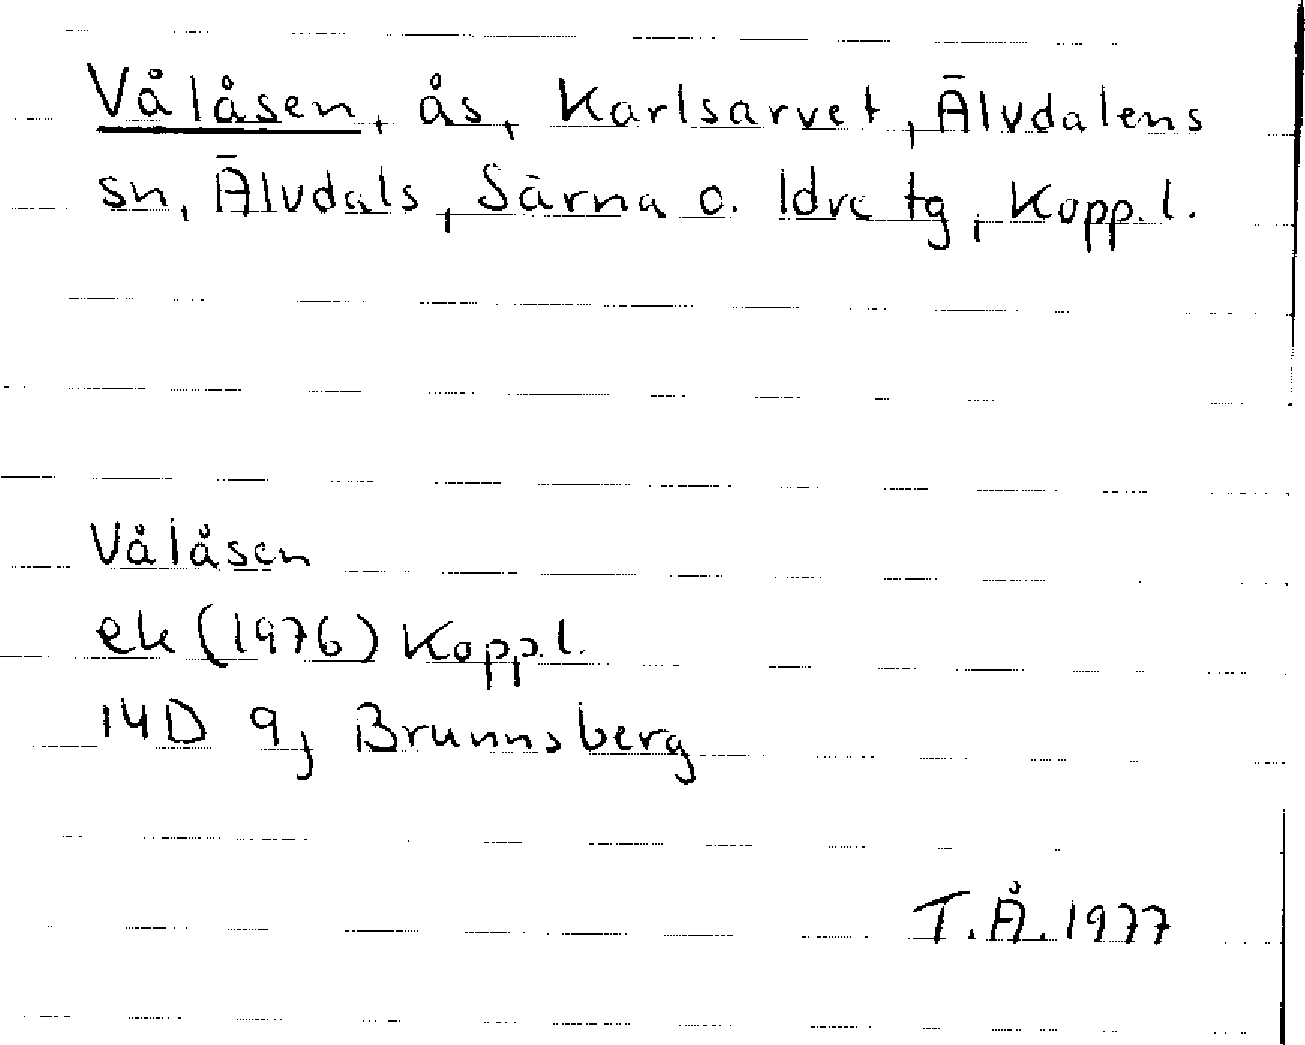 Vålåsen, ås, Karlsarvet, Älvdalens
sn, Älvdals, Särna o. Idre tg, Kopp. l.
Vålåsen
ek (1976) Kopp. l.
14D 9j Brunnsberg
T.Å. 1977